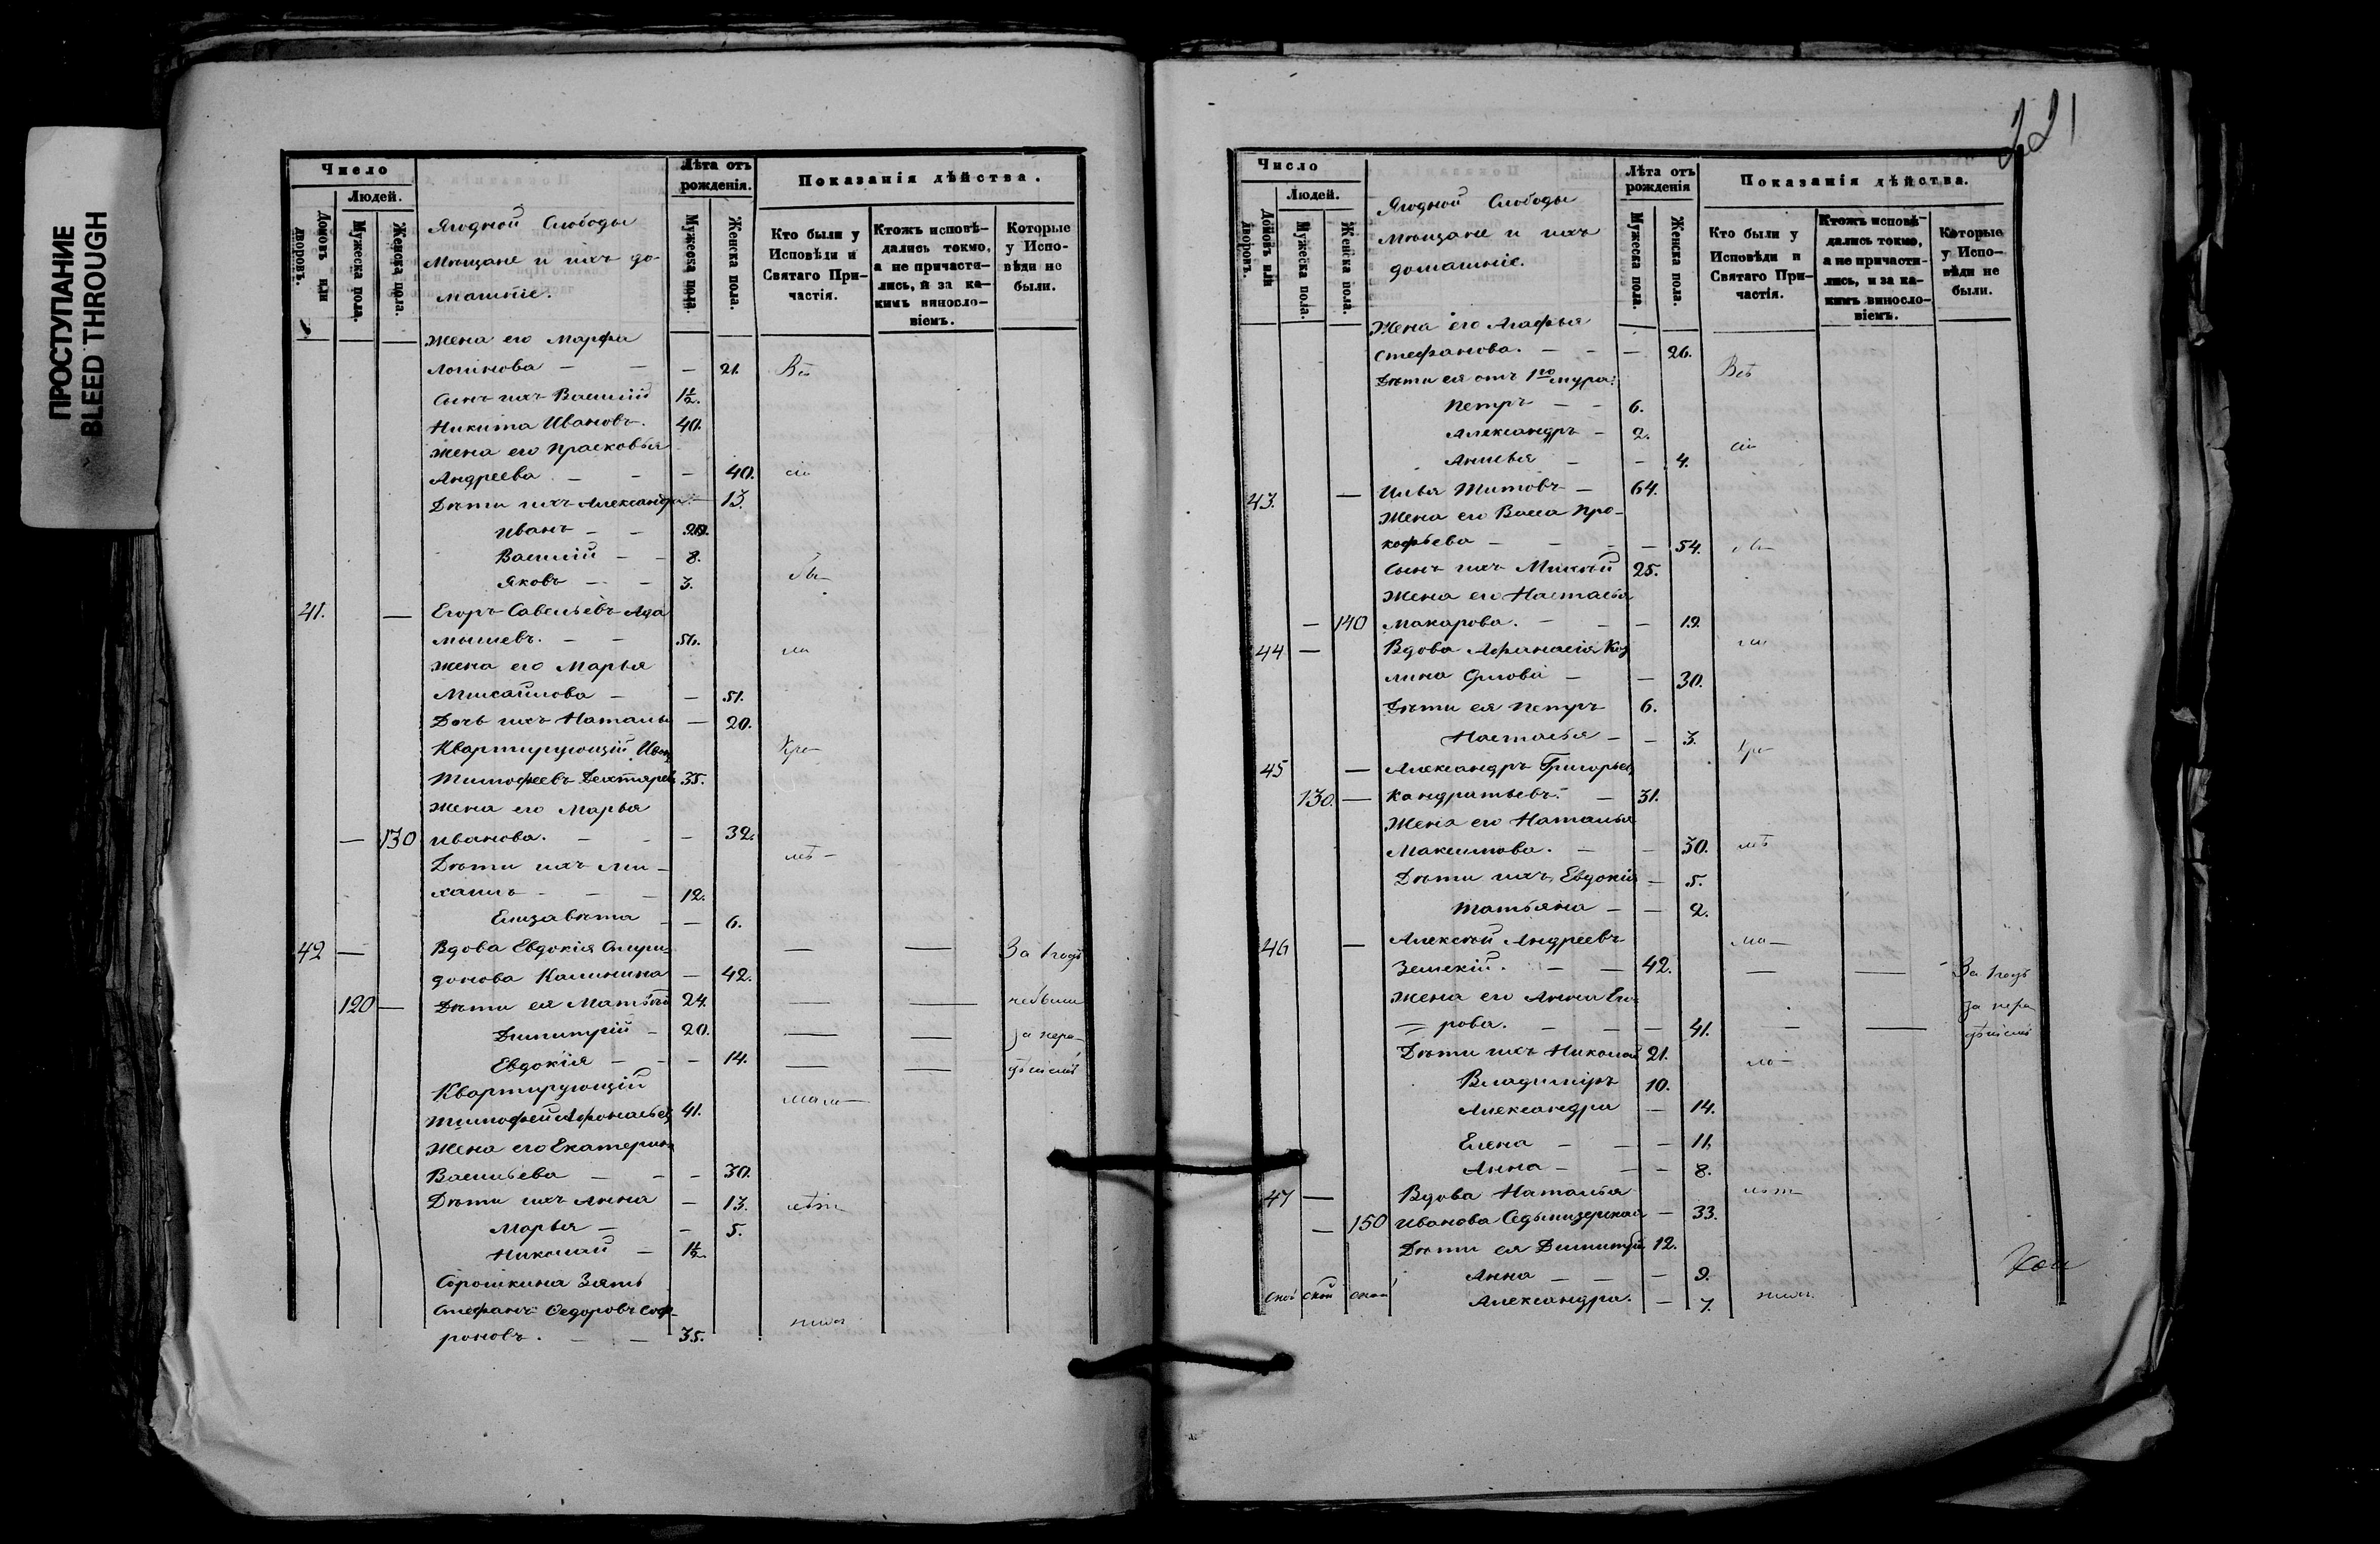 ПРОСТУПАНИЕ
BLEED THROUGH
Число
Людей.
Домовъ или дворовъ.
Мужеска пола.
Женска пола.
Ягодной Слободы
Мѣщане и ихъ до-
машніе.
Лѣта отъ
рожденія.
Мужеска пола.
Женска пола.
Показанія дѣйства.
Кто были у
Исповѣди и
Святаго При-
частія.
Ктожъ исповѣ-
дались токмо,
а не причасти-
лись, и за ка-
кимъ винosло-
віемъ.
Которые
у Испо-
вѣди не
были.
Жена его Марфа
Логинова — — — 21. Всѣ
Сынъ ихъ Василій 1½.
Никита Ивановъ. 40.
Жена его Прасковья
Андреева — — — 40. сіи
Дѣти ихъ Александра — 13.
Иванъ — —
Василій — — 8.
Яковъ — — 3. бы-
41. — Егоръ Савельевъ Ада
мышевъ. — —
ли
Жена его Марья
Михайлова — — 51.
Дочь ихъ Наталья — 20.
Квартирующій Иванъ
Тимофеевъ Дехтяревъ 35.
Жена его Марья
— 130 Иванова. — — — 32.
лѣ —
Дѣти ихъ Ми-
хаилъ — — — 12.
Елизавѣта — — 6.
42 — Вдова Евдокія Спири- — — За 1 годъ
донова Калинина — 42.
120 — Дѣти ея Матвѣй 24. — — небыли
Димитрій — 20. — — за нера-
Евдокія — — — 14. — — дѣніемъ
Квартирующій
мало —
Тимофей Афонасьевъ 41.
Жена его Екатерина
Васильева — — — 30.
Дѣти ихъ Анна — 13. лѣтн
Марья — — 5.
Николай — 1½.
Сорошкина Зять
Стефанъ Ѳедоровъ Соф-
роновъ. — — 35.
221
Число
Людей.
Домовъ или дворовъ.
Мужеска пола.
Женска пола.
Ягодной Слободы
Мѣщане и ихъ
домашніе.
Лѣта отъ
рожденія
Мужеска пола.
Женска пола.
Показанія дѣйства.
Кто были у
Исповѣди и
Святаго При-
частія.
Ктожъ исповѣ-
дались токмо,
а не причасти-
лись, и за ка-
кимъ винosло-
віемъ.
Которые
у Испо-
вѣди не
были.
Жена его Агафья
Стефанова. — — — 26. Всѣ
Дѣти ея отъ 1го мужа:
Петръ — — 6.
Александръ — 2.
сіи
Анисья — — 4.
43. — Илья Титовъ — 64.
Жена его Васса Про-
кофьева — — — — 54. бы—
Сынъ ихъ Михей 25.
Жена его Настасья
— 140 Макарова. — — — 19.
44 — Вдова Афанасія Коз ли
лина — 30.
Дѣти ея Петръ 6.
Настасья — — 3.
45 — Александръ Григорьевъ
130. — Кондратьевъ. — 31.
Жена его Наталья
Максимова. — — 30. лѣ
Дѣти ихъ Евдокія — 5.
Татьяна — — 2.
46 — Алексѣй Андреевъ ма—
Земскій. — — 42. — — За 1 годъ
Жена его Анна Его- за нера
рова. — — — 41. — — дѣніемъ
Дѣти ихъ Николай 21. ло—
Владиміръ 10.
Александра — 14.
Елена — — — 11.
Анна — — — 8.
47 — Вдова Наталья лѣт—
— 150 Иванова Седьмизерская — 33.
Дѣти ея Димитрій 12.
Анна — — — 9.
Александра. — 7.